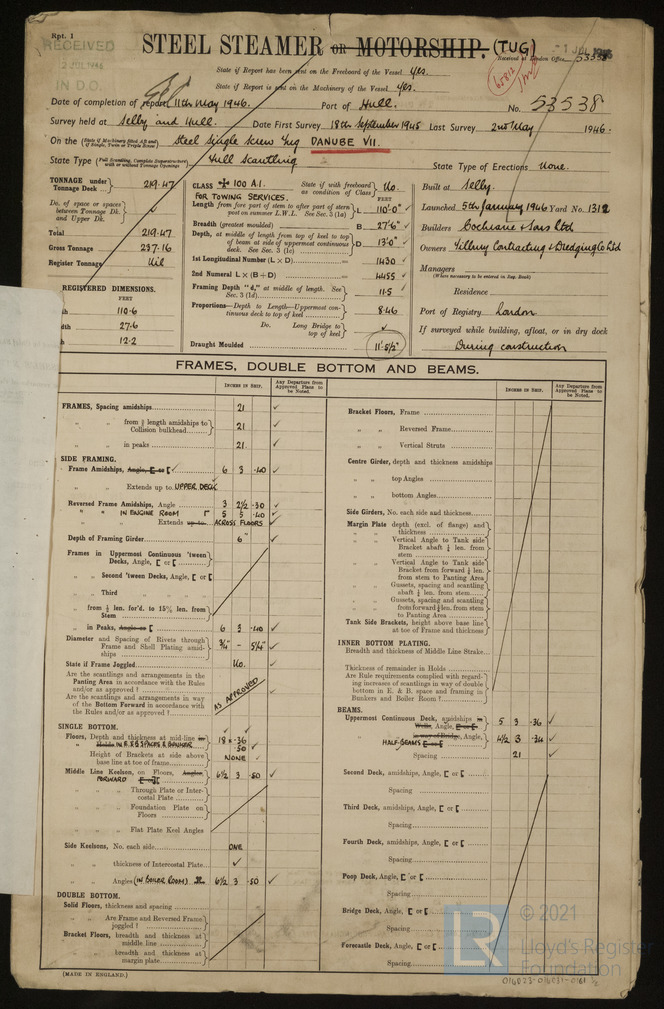 Rpt. 1
RECEIVED
2 JUL 1946
IN D.O.
STEEL STEAMER OR MOTORSHIP. (TUG)
1 JUL 1946
Received at London Office
53538
State if Report has been sent on the Freeboard of the Vessel yes.
State if Report is sent on the Machinery of the Vessel yes.
Date of completion of report 11th May 1946. Port of Hull. No. 53538
Survey held at Selby and Hull. Date First Survey 18th September 1945 Last Survey 2nd May 1946.
On the Steel single screw tug DANUBE VII.
State Type (Full Scantling, Complete Superstructure with or without Tonnage Openings) Full Scantling State Type of Erections None.
TONNAGE under Tonnage Deck 219.47
Do. of space or spaces between Tonnage Dk. and Upper Dk.
Total 219.47
Gross Tonnage 237.16
Register Tonnage Nil
REGISTERED DIMENSIONS.
FEET
110.6
27.6
12.2
CLASS ✠ 100 A.1. State if with freeboard as condition of Class No.
FOR TOWING SERVICES.
FEET
Length from fore part of stem to after part of stern post on summer L.W.L. See Sec. 3 (1a) L 110'-0"
Breadth (greatest moulded) B 27'-6"
Depth, at middle of length from top of keel to top of beam at side of uppermost continuous deck. See Sec. 3 (1c) D 13'-0"
1st Longitudinal Number (L × D) 1430
2nd Numeral L × (B + D) 4455
Framing Depth "d," at middle of length. See Sec. 3 (1d) 11.5
Proportions—Depth to Length—Uppermost continuous deck to top of keel 8.46
Do. Long Bridge to top of keel
Draught Moulded 11'-5½"
Built at Selby.
Launched 5th January 1946 Yard No. 1312
Builders Cochrane & Sons Ltd
Owners Tilbury Contracting & Dredging Co Ltd
Managers
(Where necessary to be entered in Reg. Book)
Residence
Port of Registry London
If surveyed while building, afloat, or in dry dock
During construction
FRAMES, DOUBLE BOTTOM AND BEAMS.
INCHES IN SHIP.
Any Departure from Approved Plans to be Noted.
FRAMES, Spacing amidships 21
" " from ⅗ length amidships to Collision bulkhead 21
" " in peaks 21.
SIDE FRAMING.
Frame Amidships, Angle, E or [ 6 3 .40
" " Extends up to UPPER DECK
Reversed Frame Amidships, Angle 3 2½ .30
" " IN ENGINE ROOM 5 3 .40
" " Extends up to ACROSS FLOORS
Depth of Framing Girder 6"
Frames in Uppermost Continuous 'tween Decks, Angle, E or [
" Second 'tween Decks, Angle, E or [
" Third " " "
" from ⅕ len. for'd. to 15% len. from Stem
" in Peaks, Angle or [ 6 3 .40
Diameter and Spacing of Rivets through Frame and Shell Plating amidships ¾" - 5¼"
State if Frame Joggled No.
Are the scantlings and arrangements in the Panting Area in accordance with the Rules and/or as approved ?
Are the scantlings and arrangements in way of the Bottom Forward in accordance with the Rules and/or as approved ?
AS APPROVED
SINGLE BOTTOM.
Floors, Depth and thickness at mid-line in Holds IN E & B SPACES & BUNKER 18 × .36 .50
Height of Brackets at side above base line at toe of frame NONE
Middle Line Keelson, on Floors, Angles, FORWARD 6½ 3 .50
" " Through Plate or Intercostal Plate
" " Foundation Plate on Floors
" " Flat Plate Keel Angles
Side Keelsons, No. each side ONE
" " thickness of Intercostal Plate
" " Angles (IN BOILER ROOM) 6½ 3 .50
DOUBLE BOTTOM.
Solid Floors, thickness and spacing
" " Are Frame and Reversed Frame joggled ?
Bracket Floors, breadth and thickness at middle line
" " breadth and thickness at margin plate
(MADE IN ENGLAND.)
INCHES IN SHIP.
Any Departure from Approved Plans to be Noted.
Bracket Floors, Frame
" " Reversed Frame
" " Vertical Struts
Centre Girder, depth and thickness amidships
" " top Angles
" " bottom Angles
Side Girders, No. each side and thickness
Margin Plate depth (excl. of flange) and thickness
" " Vertical Angle to Tank side Bracket abaft ¼ len. from stem
" " Vertical Angle to Tank side Bracket from forward ¼ len. from stem to Panting Area
" " Gussets, spacing and scantling abaft ¼ len. from stem
" " Gussets, spacing and scantling from forward ¼ len. from stem to Panting Area
Tank Side Brackets, height above base line at toe of Frame and thickness
INNER BOTTOM PLATING.
Breadth and thickness of Middle Line Strake
Thickness of remainder in Holds
Are Rule requirements complied with regarding increases of scantlings in way of double bottom in E. & B. space and framing in Bunkers and Boiler Room ?
BEAMS.
Uppermost Continuous Deck, amidships in Wells, Angle, E or [ 5 3 .36
" " in way of Bridge, Angle, HALF BEAMS E or [ 4½ 3 .34
Spacing 21
Second Deck, amidships, Angle, E or [
Spacing
Third Deck, amidships, Angle, E or [
Spacing
Fourth Deck, amidships, Angle, E or [
Spacing
Poop Deck, Angle, E or [
Spacing
Bridge Deck, Angle, E or [
Spacing
Forecastle Deck, Angle, E or [
Spacing
LR
© 2021
Lloyd's Register
Foundation